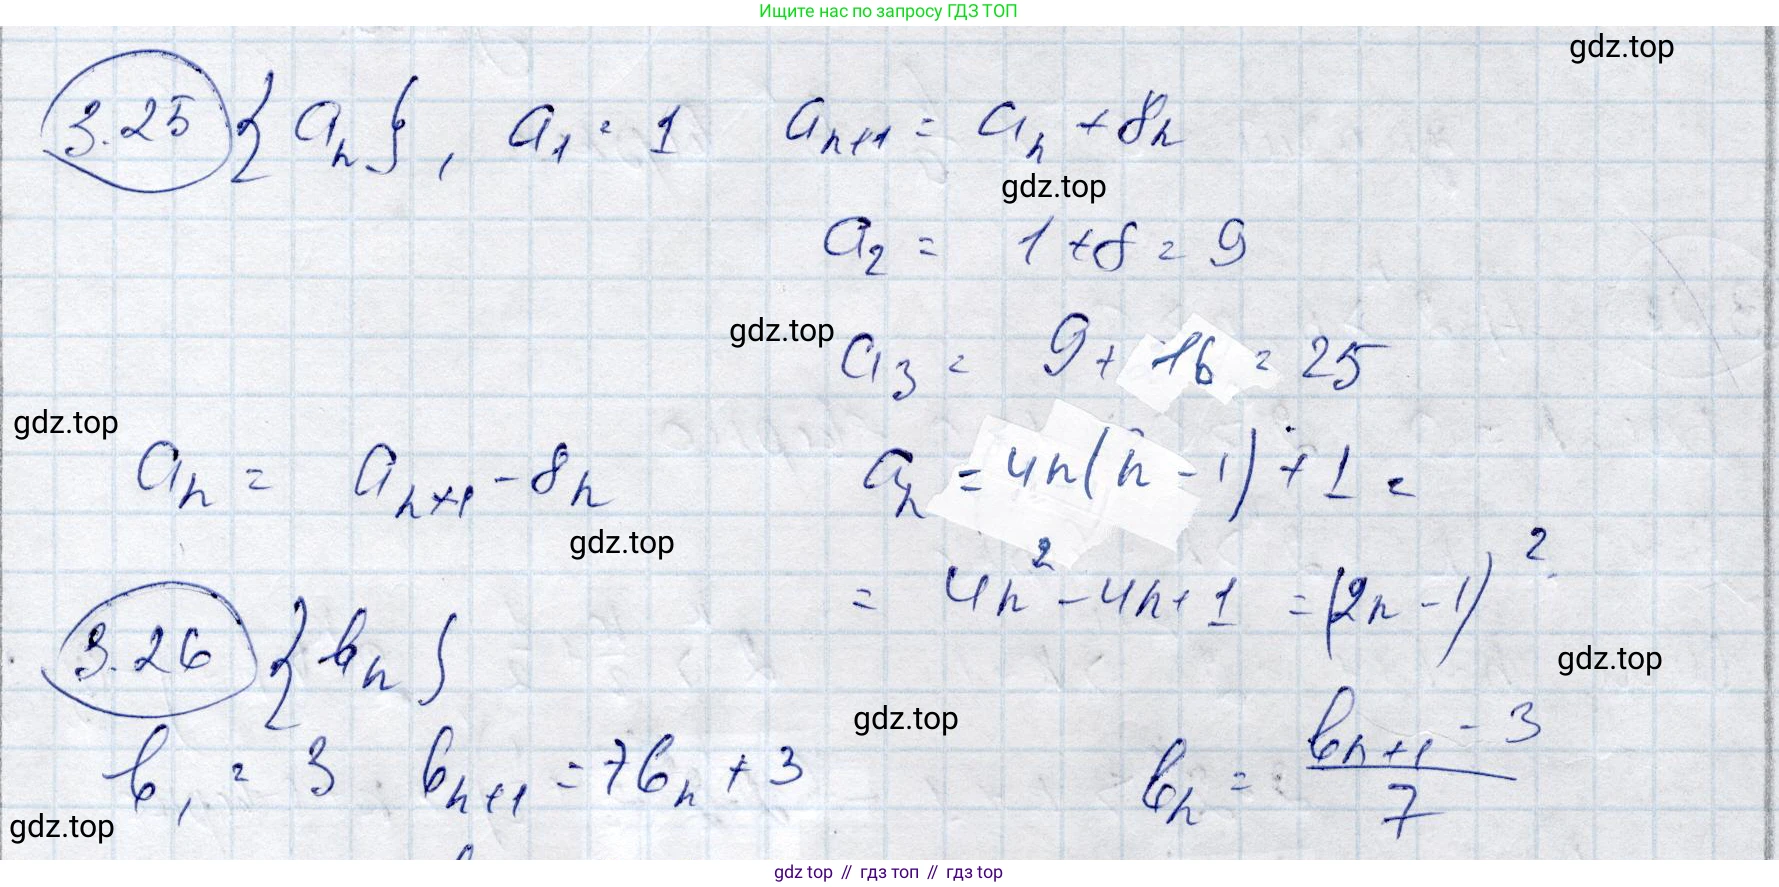 Ищите нас по запросу ГДЗ ТОП
gdz.top
3.25 {aₙ}, a₁ = 1 aₙ₊₁ = aₙ + 8n
gdz.top
a₂ = 1 + 8 = 9
gdz.top
a₃ = 9 + 16 = 25
gdz.top
aₙ = aₙ₊₁ - 8n aₙ = 4n(n - 1) + 1 =
gdz.top
= 4n² - 4n + 1 = (2n - 1)².
3.26 {bₙ}
gdz.top
gdz.top
b₁ = 3 bₙ₊₁ = 7bₙ + 3 bₙ = (bₙ₊₁ - 3)/7
gdz.top
gdz top // гдз топ // гдз top